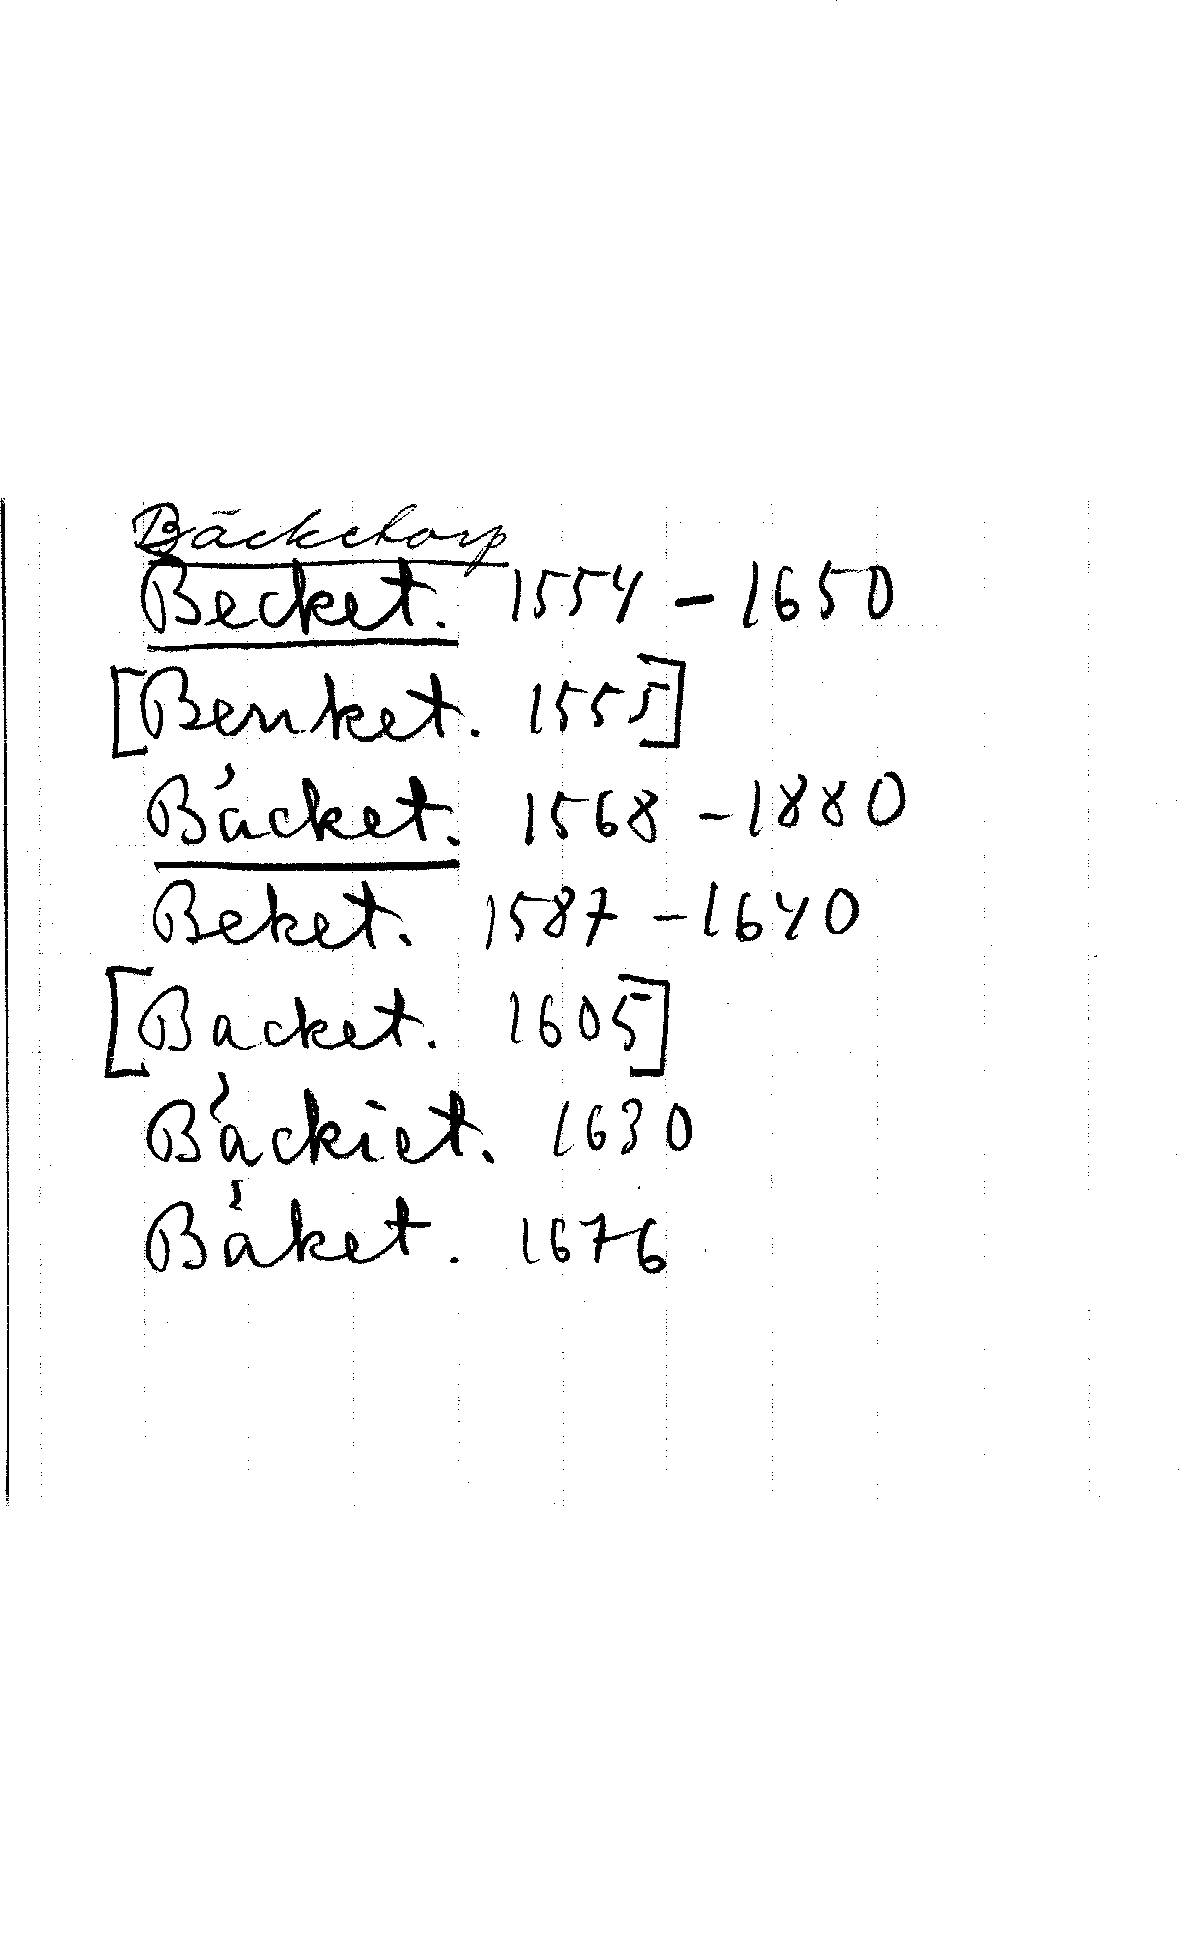 Bäcketorp
Becket. 1554 – 1650
[Benket. 1555]
Bäcket. 1568 – 1880
Beket. 1587 – 1640
[Backet. 1605]
Bäckiet. 1630
Bäket. 1676